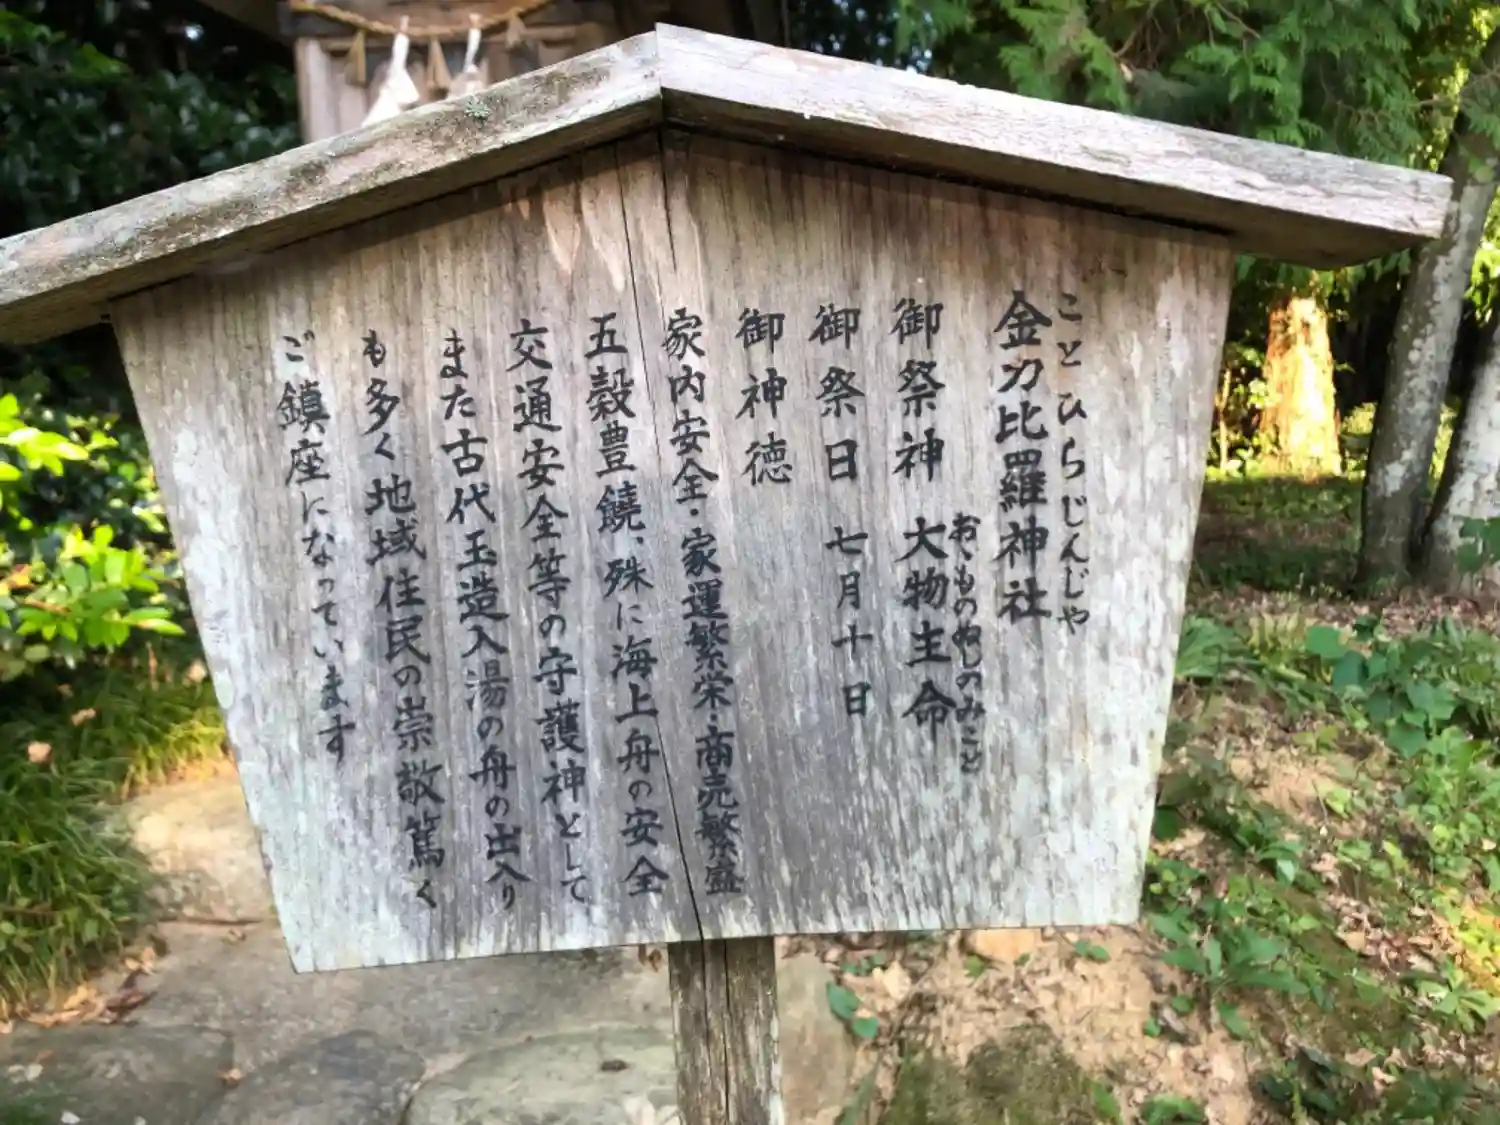 ことひらじんじゃ
金刀比羅神社
おゝものぬしのみこと
御祭神 大物主命
御祭日 七月十日
御神徳
家内安全・家運繁栄・商売繁盛
五穀豊饒、殊に海上舟の安全
交通安全等の守護神として
また古代玉造入湯の舟の出入り
も多く地域住民の崇敬篤く
ご鎮座になっています